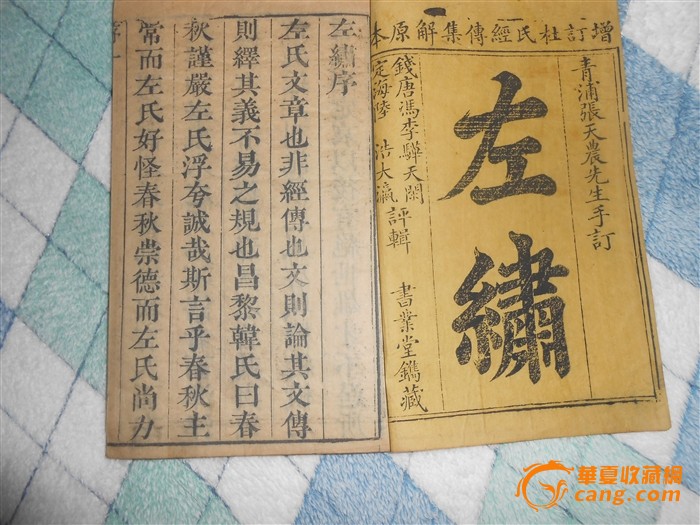 增訂杜氏經傳集解原本
青浦張天農先生手訂
左繡
錢唐馮李驊天閑
定海陸 浩大瀛 評輯 書業堂鐫藏
左繡序
左氏文章也非經傳也文則論其文傳
則繹其義不易之規也昌黎韓氏曰春
秋謹嚴左氏浮夸誠哉斯言乎春秋主
常而左氏好怪春秋崇德而左氏尚力
序 一
華夏收藏網
cang.com